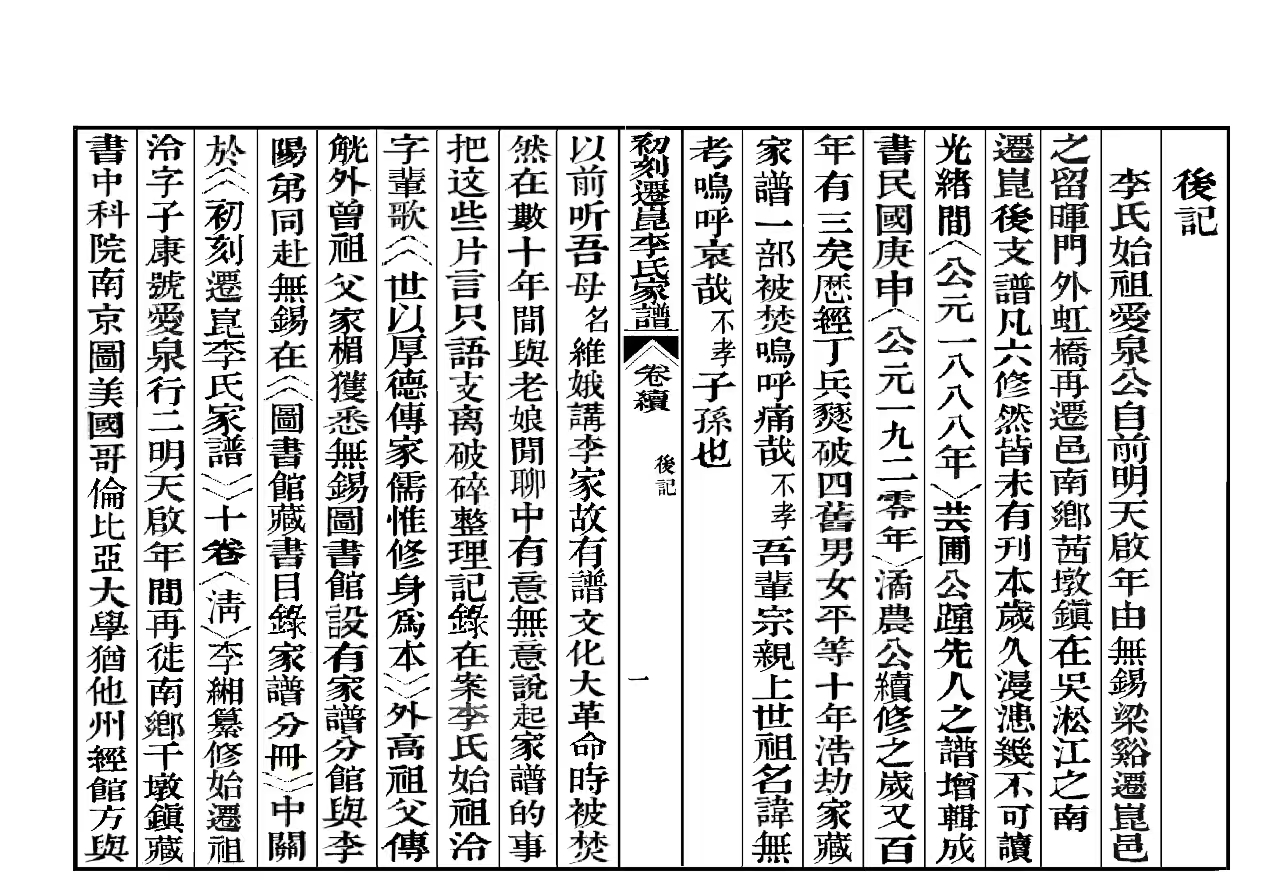 後記
李氏始祖愛泉公自前明天啟年由無錫梁谿遷崑邑
之留暉門外虹橋再遷邑南鄉茜墩鎮在吳淞江之南
遷崑後支譜凡六修然皆未有刊本歲久漫漶幾不可讀
光緒間︿公元一八八八年﹀芸圃公踵先人之譜增輯成
書民國庚申︿公元一九二零年﹀潏農公續修之歲又百
年有三矣歷經丁兵燹破四舊男女平等十年浩劫家藏
家譜一部被焚嗚呼痛哉不孝吾輩宗親上世祖名諱無
考嗚呼哀哉不孝子孫也
初刻遷崑李氏家譜 卷續 後記 一
以前听吾母名維娥講李家故有譜文化大革命時被焚
然在數十年間與老娘閒聊中有意無意說起家譜的事
把这些片言只語支离破碎整理記錄在案李氏始祖泠
字輩歌︽世以厚德傳家儒惟修身爲本︾外高祖父傳
觥外曾祖父家楣獲悉無錫圖書館設有家譜分館與李
陽弟同赴無錫在︽圖書館藏書目錄家譜分冊︾中關
於︽初刻遷崑李氏家譜︾十卷︿淸﹀李緗纂修始遷祖
泠字子康號愛泉行二明天啟年間再徙南鄉千墩鎮藏
書中科院南京圖美國哥倫比亞大學猶他州經館方與